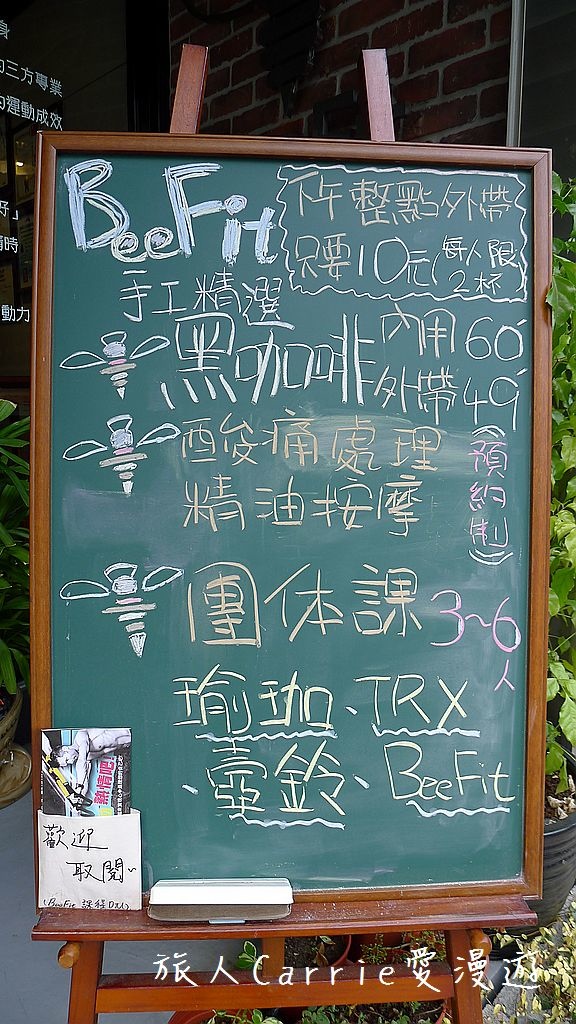 身
的三方專業
的運動成效
好」
精時
動力
BeeFit
下午整點外帶
只要10元(每人限2杯)
手工精選
黑咖啡
內用60
外帶49
酸痛處理
精油按摩
(預約制)
團体課 3~6人
瑜珈、TRX
、壺鈴、BeeFit
熱情吧
歡迎
取閱~
(BeeFit 課程DM)
旅人Carrie愛漫遊